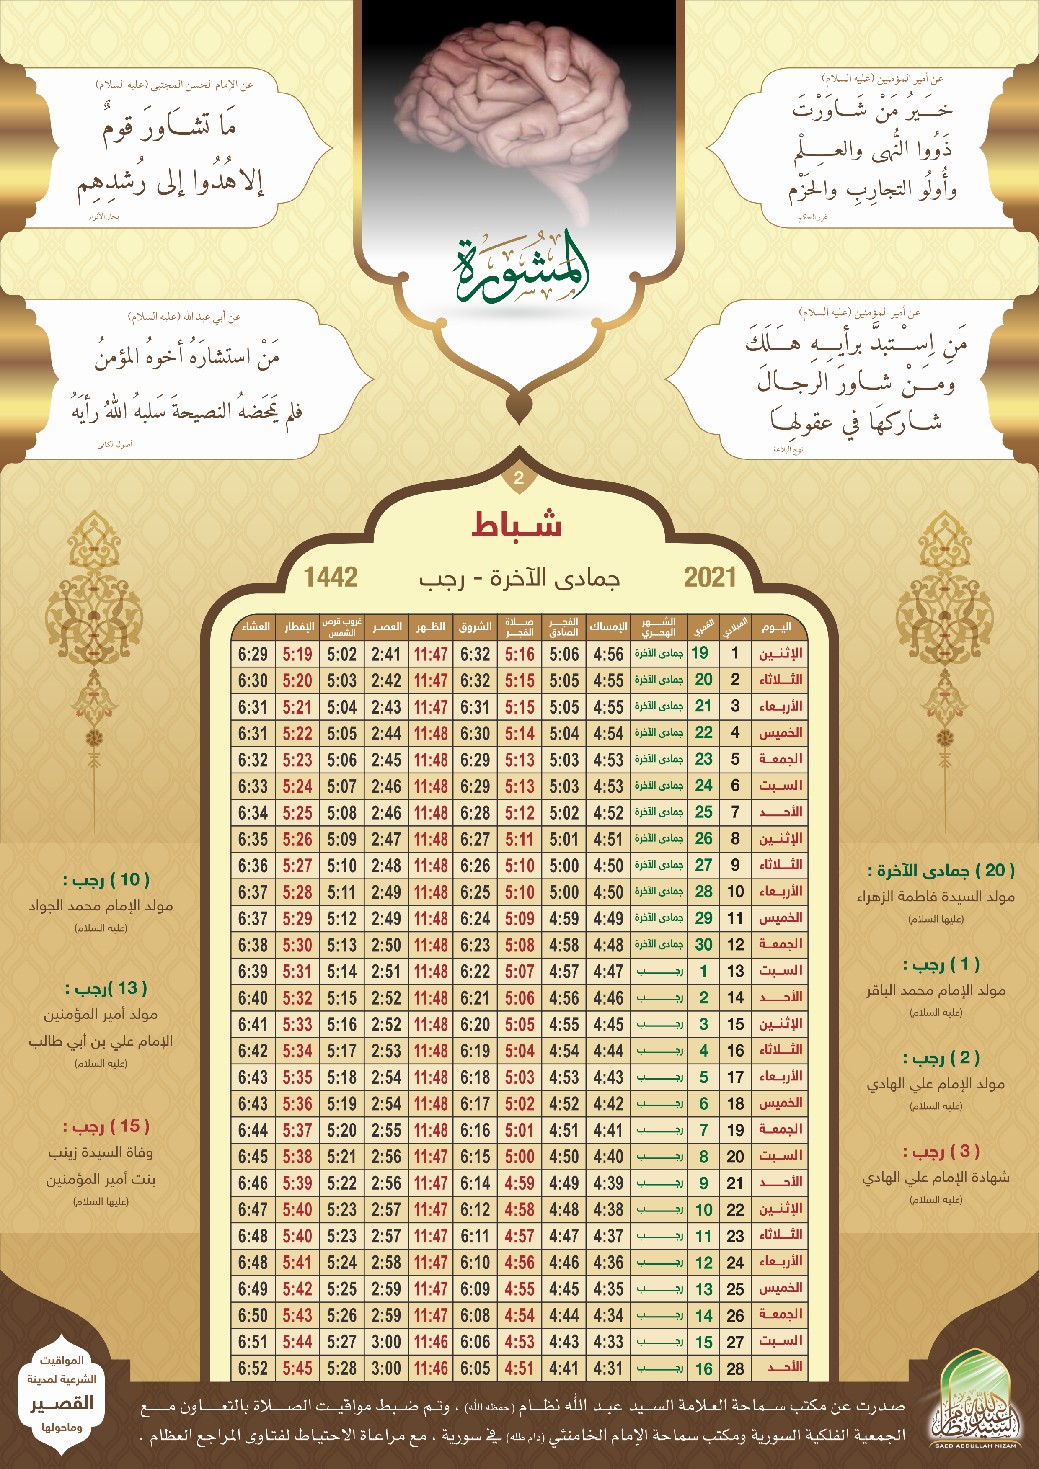 عن أمير المؤمنين (عليه السلام)
خَيرُ مَنْ شَاوَرْتَ
ذَوُوا النُّهى والعِلْمِ
وأُولُو التجارِبِ والحَزْمِ
غرر الحكم
عن الإمام الحسن المجتبى (عليه السلام)
مَا تشَاورَ قومٌ
إلا هُدُوا إلى رُشدِهِم
بحار الأنوار
المَشُورَة
عن أمير المؤمنين (عليه السلام)
مَنِ اِسْتبدَّ برأيِهِ هَلَكَ
ومَنْ شاورَ الرجالَ
شاركهَا في عقولِهَا
نهج البلاغة
عن أبي عبد الله (عليه السلام)
مَنْ استشارَهُ أخوهُ المؤمنُ
فلم يَمحَضهُ النصيحةَ سَلبهُ اللهُ رأيَهُ
أصول الكافي
2
شباط
2021 جمادى الآخرة - رجب 1442
اليوم الميلادي القمري الشهر الهجري الإمساك الفجر الصادق صلاة الفجر الشروق الظهر العصر غروب قرص الشمس الإفطار العشاء
الإثنين 1 19 جمادى الآخرة 4:56 5:06 5:16 6:32 11:47 2:41 5:02 5:19 6:29
الثلاثاء 2 20 جمادى الآخرة 4:55 5:05 5:15 6:32 11:47 2:42 5:03 5:20 6:30
الأربعاء 3 21 جمادى الآخرة 4:55 5:05 5:15 6:31 11:47 2:43 5:04 5:21 6:31
الخميس 4 22 جمادى الآخرة 4:54 5:04 5:14 6:30 11:48 2:44 5:05 5:22 6:31
الجمعة 5 23 جمادى الآخرة 4:53 5:03 5:13 6:29 11:48 2:45 5:06 5:23 6:32
السبت 6 24 جمادى الآخرة 4:53 5:03 5:13 6:29 11:48 2:46 5:07 5:24 6:33
الأحد 7 25 جمادى الآخرة 4:52 5:02 5:12 6:28 11:48 2:46 5:08 5:25 6:34
الإثنين 8 26 جمادى الآخرة 4:51 5:01 5:11 6:27 11:48 2:47 5:09 5:26 6:35
الثلاثاء 9 27 جمادى الآخرة 4:50 5:00 5:10 6:26 11:48 2:48 5:10 5:27 6:36
الأربعاء 10 28 جمادى الآخرة 4:50 5:00 5:10 6:25 11:48 2:49 5:11 5:28 6:37
الخميس 11 29 جمادى الآخرة 4:49 4:59 5:09 6:24 11:48 2:49 5:12 5:29 6:37
الجمعة 12 30 جمادى الآخرة 4:48 4:58 5:08 6:23 11:48 2:50 5:13 5:30 6:38
السبت 13 1 رجب 4:47 4:57 5:07 6:22 11:48 2:51 5:14 5:31 6:39
الأحد 14 2 رجب 4:46 4:56 5:06 6:21 11:48 2:52 5:15 5:32 6:40
الإثنين 15 3 رجب 4:45 4:55 5:05 6:20 11:48 2:52 5:16 5:33 6:41
الثلاثاء 16 4 رجب 4:44 4:54 5:04 6:19 11:48 2:53 5:17 5:34 6:42
الأربعاء 17 5 رجب 4:43 4:53 5:03 6:18 11:48 2:54 5:18 5:35 6:43
الخميس 18 6 رجب 4:42 4:52 5:02 6:17 11:48 2:54 5:19 5:36 6:43
الجمعة 19 7 رجب 4:41 4:51 5:01 6:16 11:48 2:55 5:20 5:37 6:44
السبت 20 8 رجب 4:40 4:50 5:00 6:15 11:47 2:56 5:21 5:38 6:45
الأحد 21 9 رجب 4:39 4:49 4:59 6:14 11:47 2:56 5:22 5:39 6:46
الإثنين 22 10 رجب 4:38 4:48 4:58 6:12 11:47 2:57 5:23 5:40 6:47
الثلاثاء 23 11 رجب 4:37 4:47 4:57 6:11 11:47 2:57 5:23 5:40 6:48
الأربعاء 24 12 رجب 4:36 4:46 4:56 6:10 11:47 2:58 5:24 5:41 6:48
الخميس 25 13 رجب 4:35 4:45 4:55 6:09 11:47 2:59 5:25 5:42 6:49
الجمعة 26 14 رجب 4:34 4:44 4:54 6:08 11:47 2:59 5:26 5:43 6:50
السبت 27 15 رجب 4:33 4:43 4:53 6:06 11:46 3:00 5:27 5:44 6:51
الأحد 28 16 رجب 4:31 4:41 4:51 6:05 11:46 3:00 5:28 5:45 6:52
( 20 ) جمادى الآخرة :
مولد السيدة فاطمة الزهراء
(عليها السلام)
( 1 ) رجب :
مولد الإمام محمد الباقر
(عليه السلام)
( 2 ) رجب :
مولد الإمام علي الهادي
(عليه السلام)
( 3 ) رجب :
شهادة الإمام علي الهادي
(عليه السلام)
( 10 ) رجب :
مولد الإمام محمد الجواد
(عليه السلام)
( 13 )رجب :
مولد أمير المؤمنين
الإمام علي بن أبي طالب
(عليه السلام)
( 15 ) رجب :
وفاة السيدة زينب
بنت أمير المؤمنين
(عليها السلام)
المواقيت
الشرعية لمدينة
القصير
وماحولها
صدرت عن مكتب سماحة العلامة السيد عبد الله نظام (حفظه الله) ، وتم ضبط مواقيت الصلاة بالتعاون مع
الجمعية الفلكية السورية ومكتب سماحة الإمام الخامنئي (دام ظله) في سورية ، مع مراعاة الاحتياط لفتاوى المراجع العظام .
السيد عبد الله نظام
SAED ABDULLAH NIZAM